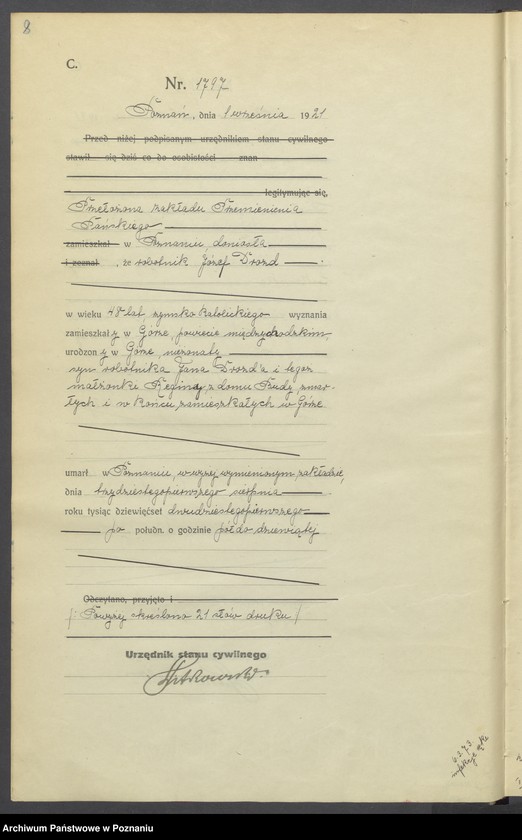 8
C.
Nr. 1797
Poznań, dnia 1 września 1921
Przed niżej podpisanym urzędnikiem stanu cywilnego
stawił się dziś co do osobistości znan
legitymując się,
Przełożona zakładu Przemienienia
Pańskiego
zamieszkał w Poznaniu, doniosła
i zeznał, że robotnik Józef Drozd
w wieku 48 lat, rzymsko katolickiego wyznania
zamieszkały w Górze, powiecie międzychodzkim,
urodzony w Górze, nieżonaty
syn robotnika Jana Drozd'a i tegoż
małżonke Reginy, z domu Rudy, zmar-
łych i w końcu zamieszkałych w Górze
umarł w Poznaniu, w wyżej wymienionym zakładzie,
dnia trzydziestegopierwszego sierpnia
roku tysiąc dziewięćset dwudziestegopierwszego
po połudn. o godzinie pół do dziewiątej
Odczytano, przyjęto i
/ Powyżej skreślono 21 słów druku /
Urzędnik stanu cywilnego
Archiwum Państwowe w Poznaniu